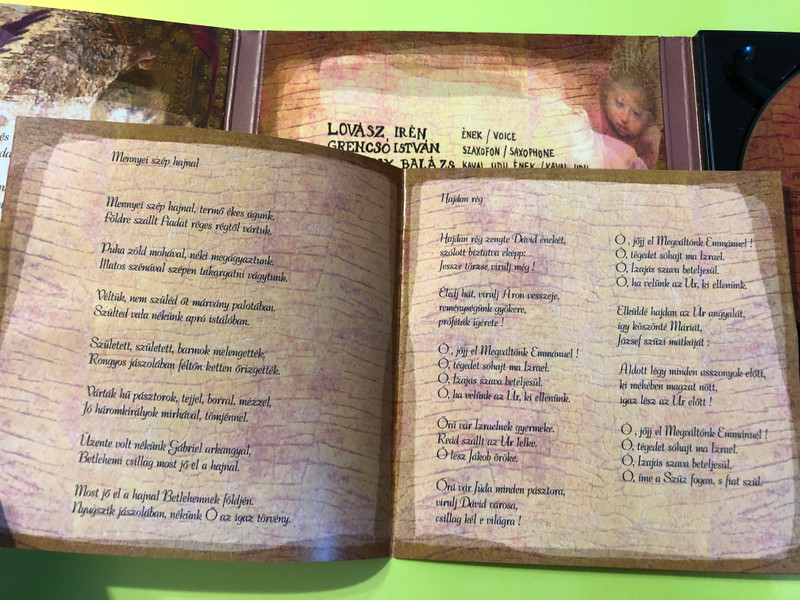 és
da
LOVÁSZ IRÉN
ÉNEK / VOICE
GRENCSÓ ISTVÁN
SZAXOFON / SAXOPHONE
BALÁZS
KAVAL, UDU, ÉNEK / KAVAL, UDU
Mennyei szép hajnal
Mennyei szép hajnal, termő ékes águnk.
Földre szállt Fiadát réges régtől vártuk.
Puha zöld mohával, néki megágyaztunk.
Illatos szénával szépen takargatni vágytunk.
Véltük, nem szüléd őt márvány palotában.
Szülted vala nékünk apró istálóban.
Született, született, barmok melengették,
Rongyos jászolában féltőn ketten őrizgették.
Várták hű pásztorok, tejjel, borral, mézzel,
Jó háromkirályok mirhával, tömjénnel.
Üzente volt nékünk Gábriel arkangyal,
Betlehemi csillag most jő el a hajnal.
Most jő el a hajnal Betlehemnek földjén.
Nyugszik jászolában, nékünk Ő az igaz törvény.
Hajdan rég
Hajdan rég zengte Dávid énekét,
szólott biztatva eképp:
Jessze törzse virulj még !
Élzij hát, virulj Áron vesszeje,
reménységünk gyökere,
próféták igérete !
Ó , jöjj el Megváltónk Emmánuel !
Ó, tégedet sóhajt ma Izrael.
Ó, Izajás szava beteljesül.
Ó, ha velünk az Úr, ki ellenünk.
Őrá vár Izraelnek gyermeke.
Reád szállt az Úr lelke.
Ő lesz Jákob öröke.
Őrá vár Júda minden pásztora,
virulj Dávid városa,
csillag kél e világra !
Ó , jöjj el Megváltónk Emmánuel !
Ó, tégedet sóhajt ma Izrael.
Ó, Izajás szava beteljesül.
Ó, ha velünk az Úr, ki ellenünk.
Elküldé hajdan az Úr angyalát,
így köszönté Máriát,
József szűzi mátkáját :
Áldott légy minden asszonyok előtt,
ki méhében magzat nőtt,
igaz lész az Úr előtt !
Ó , jöjj el Megváltónk Emmánuel !
Ó, tégedet sóhajt ma Izrael.
Ó, Izajás szava beteljesül.
Ó, íme a Szűz fogan, s fiat szül.